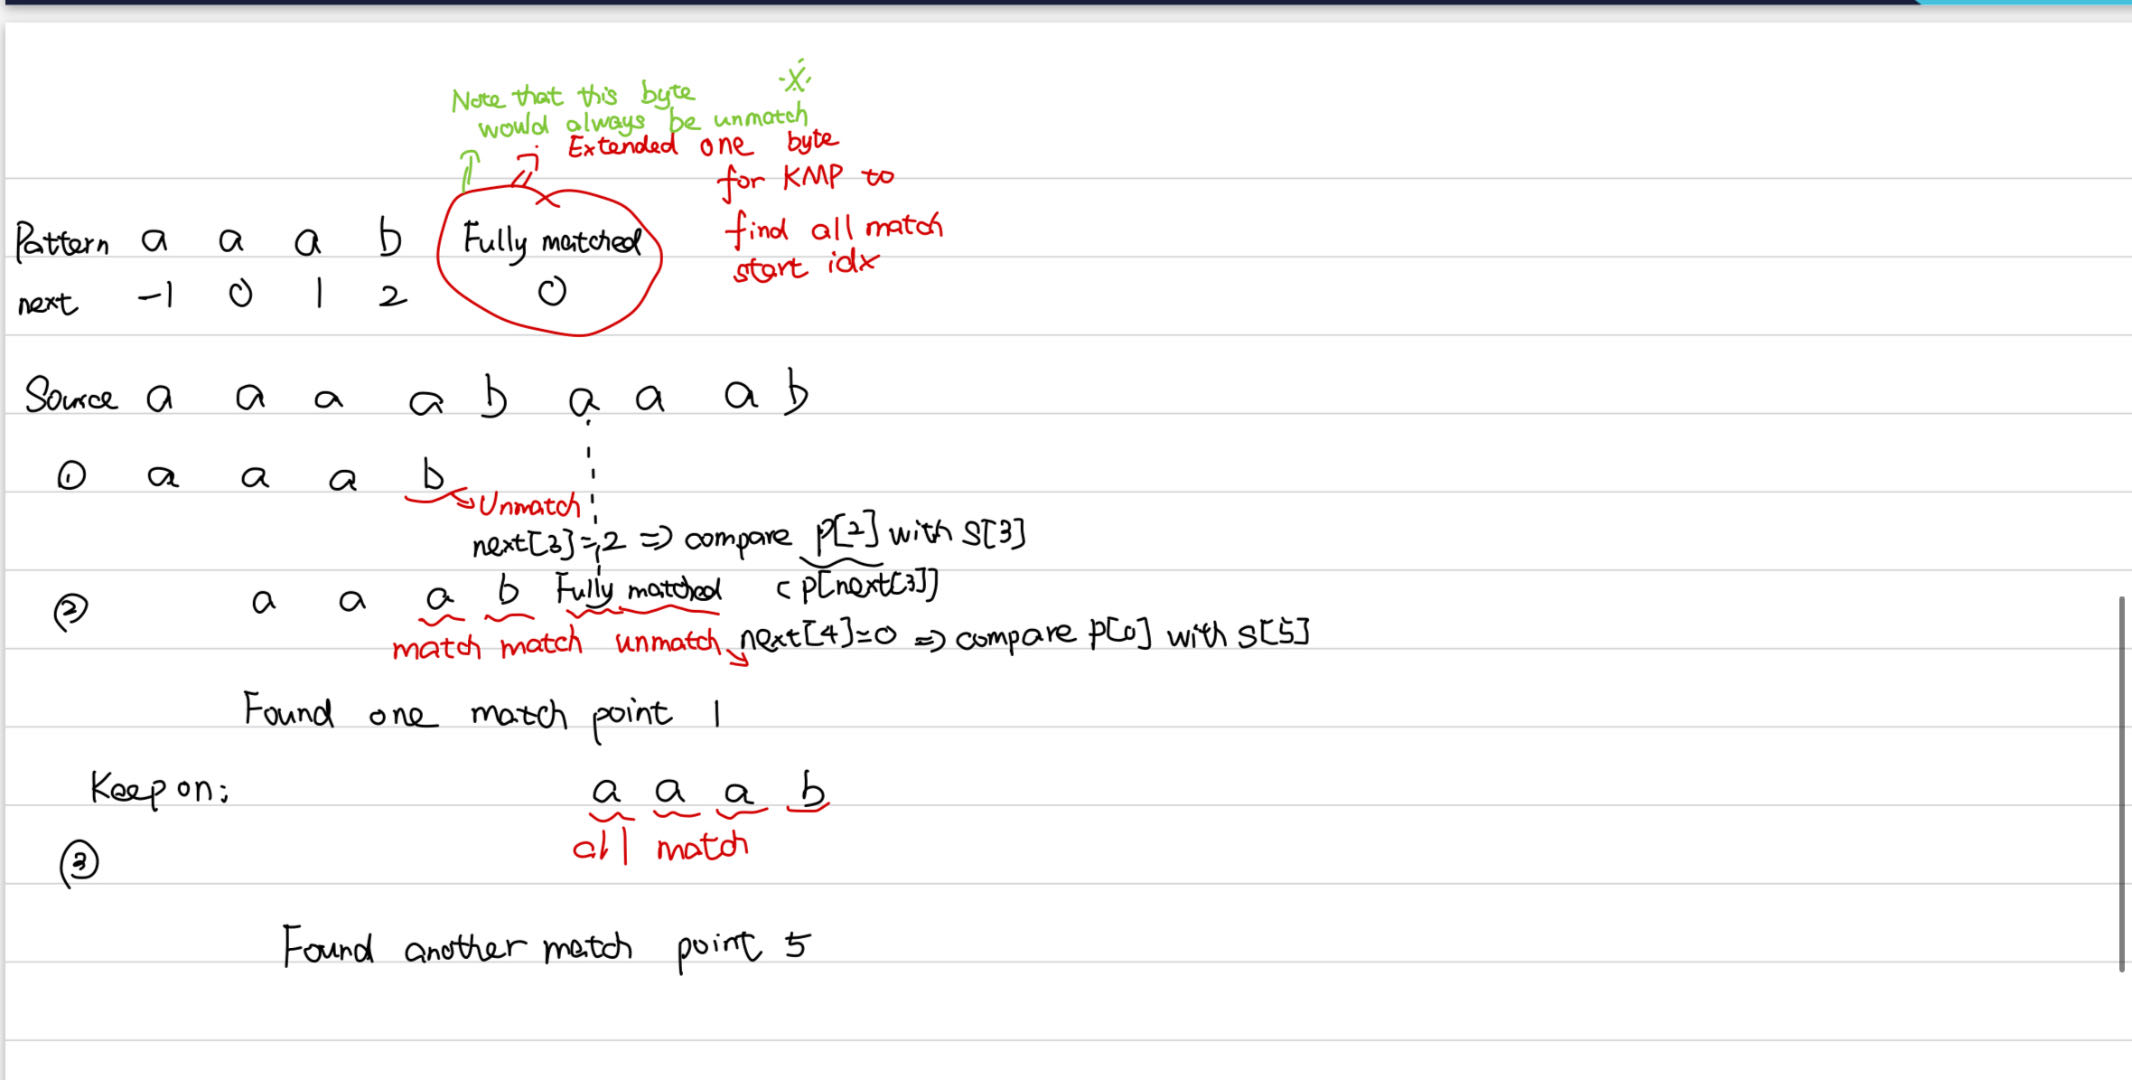 Note that this byte
would always be unmatch
Extended one byte
for KMP to
find all match
start idx
Pattern a a a b Fully matched
next -1 0 1 2 0
Source a a a a b a a a b
① a a a b
Unmatch
next[3]=2 => compare P[2] with S[3]
② a a a b Fully matched
c P[next[3]]
match match unmatch next[4]=0 => compare P[0] with S[5]
Found one match point 1
Keep on; a a a b
all match
③
Found another match point 5